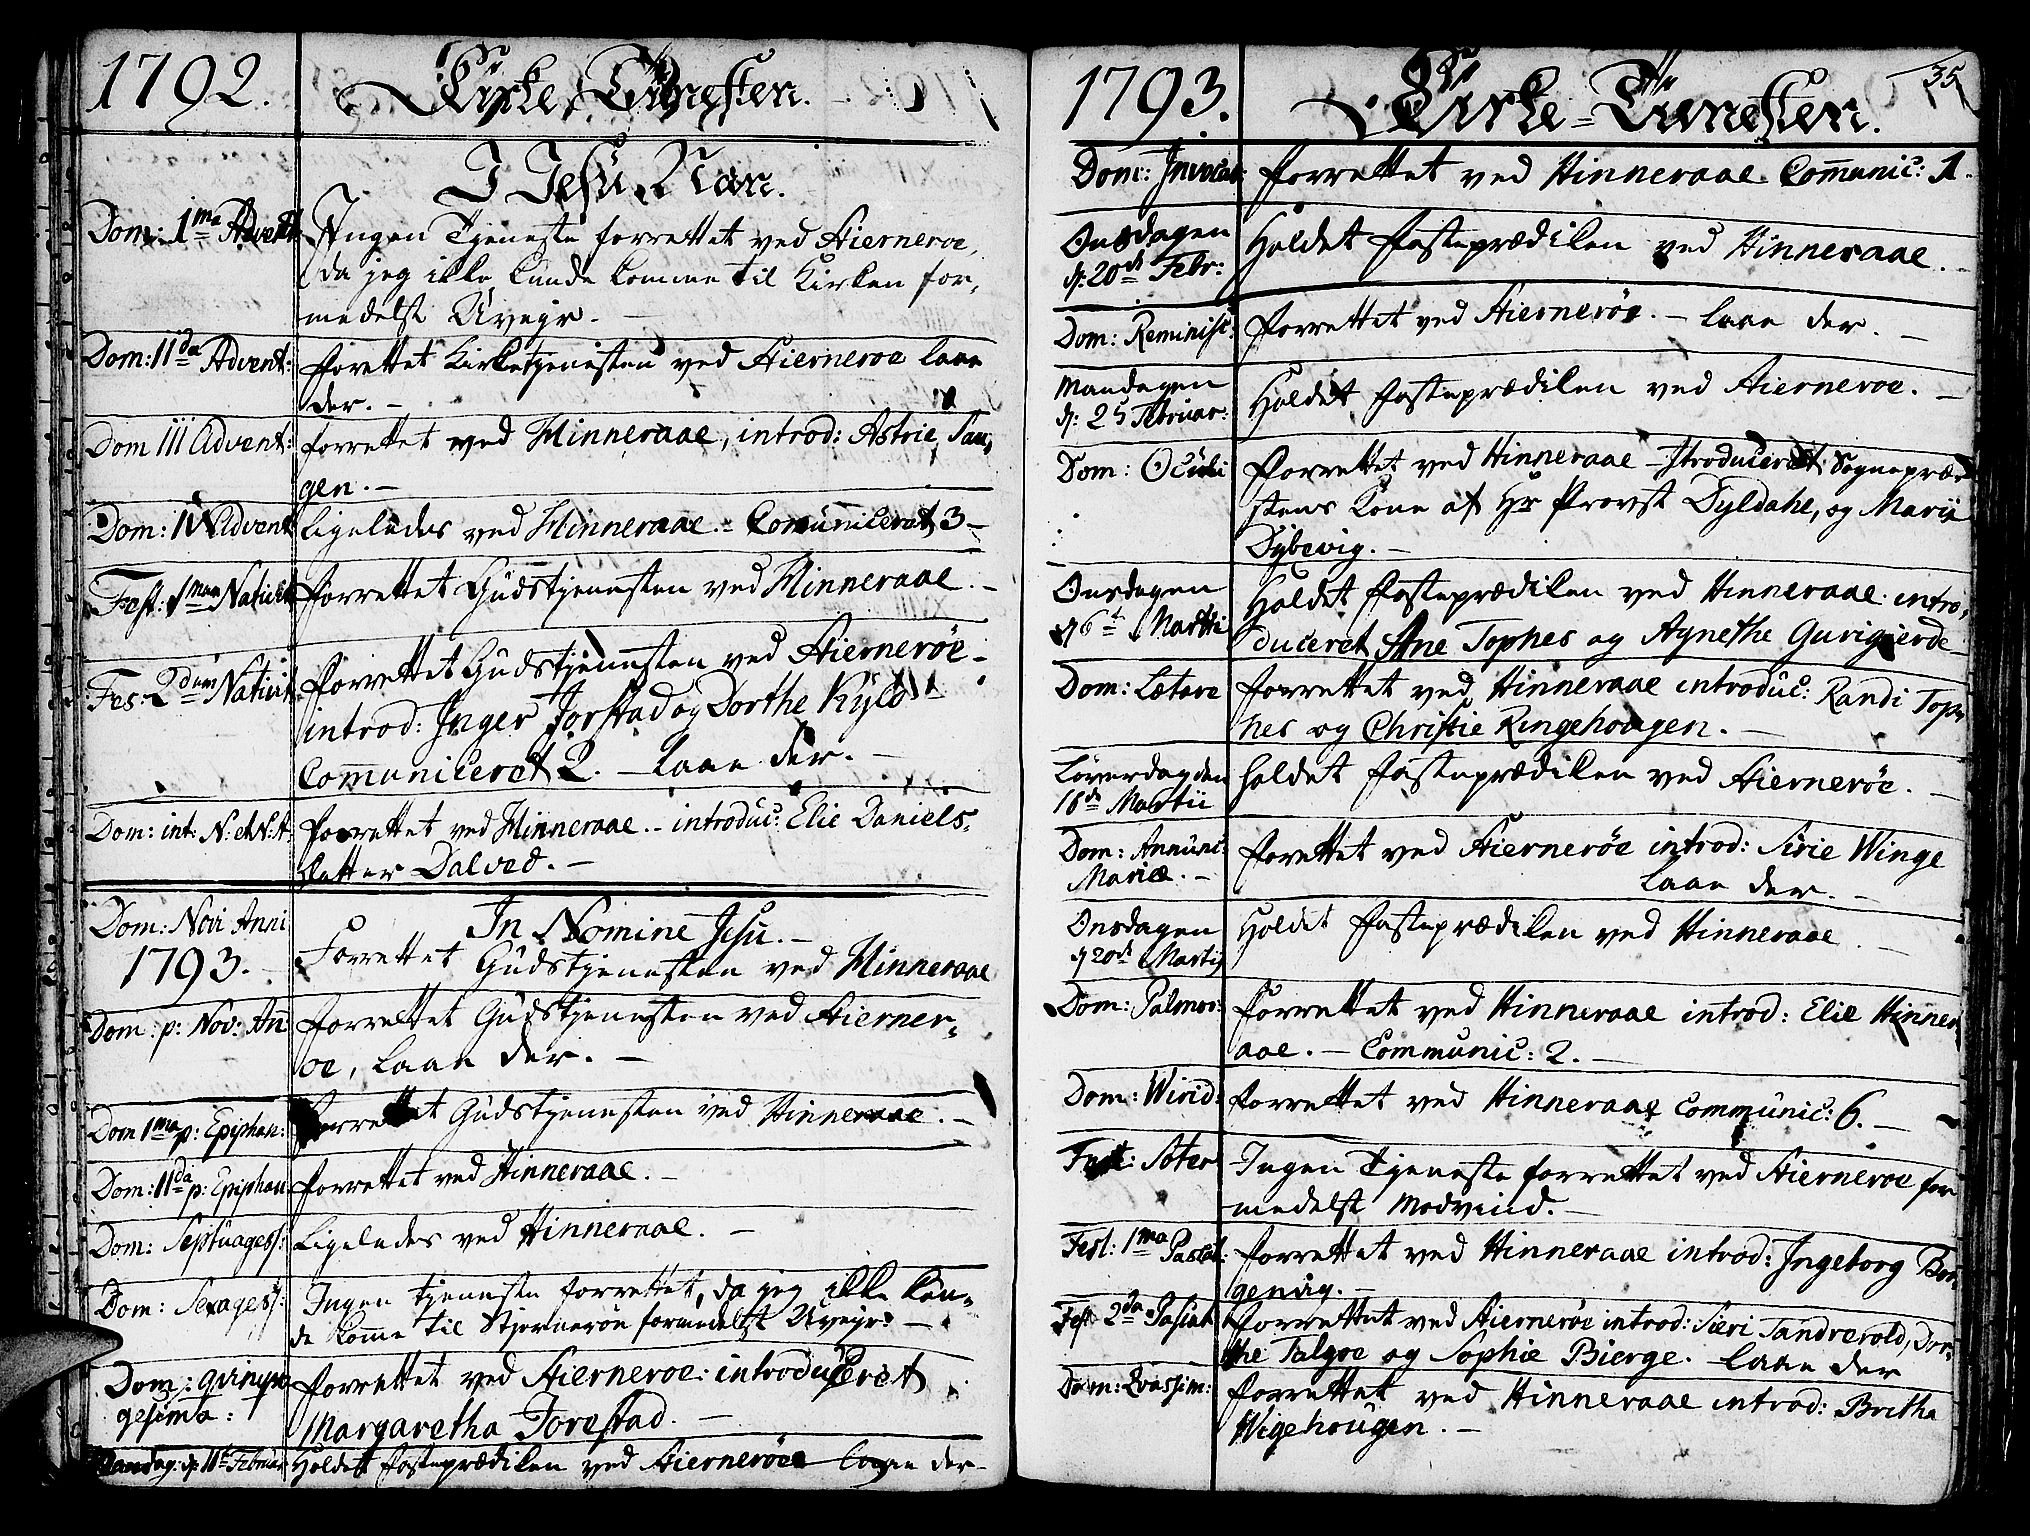 1792.
Kirke-Tienesten.
I JEsu Nan.
Dom: 1ma Advent: Ingen Tjeneste forrettet ved Hierneroe,
da jeg ikke kunde komme til Kirken for,
medelst Uveyr. —
Dom: IIda Advent: forettet Kirketjenesten ved Hierneroe laae
der. —
Dom III Advent: forrettet ved Hinneraae, introd: Astrie, Tau,
gen. —
Dom: IV Advent Ligeledes ved Hinneraae. — Comuniceret 3 —
Fest: 1maa Nativit forrettet Gudstjenesten ved Hinneraae. —
Fes: 2dum Nativit forrettet Gudstjenesten ved Hiernerøe —
introd: Inger Jorstad og Dorthe Kylo
Communiceret 2. — laae der. —
Dom: int: N: et N: A: forrettet ved Hinneraae. — introduc: Elie Daniels,
datter Dalved. —
Dom: Novi Anni In Nomine Jesu. —
1793. Forrettet Gudstjenesten ved Hinneraae
Dom: p: Nov: An: forrettet Gudstjenesten ved Hierner,
oe, laae der. —
Dom 1ma p: Epiphan: forrettet Gudstjenesten ved Hinneraae. —
Dom: IIda p: Epiphan forrettet ved Hinneraae. —
Dom: Septuages: Ligeledes ved Hinneraae. —
Dom: Sexages: Ingen tjeneste forrettet, da jeg ikke kun,
de kome til Stjernerøe formedelst Uveyr: —
Dom: qvinqva forrettet ved Hierneroe: introduceret
gesima: Margaretha Torestad. —
Mandag: d: 11te Februar Holdet fasteprædiken ved Hiernerøe laae der —
1793.
Kirke-Tienesten.
35
Dom: Invocav: forrettet ved Hinneraae Communic: 1.
Onsdagen Holdet fasteprædiken ved Hinneraae. —
d: 20de Febr:
Dom: Reminisc: forrettet ved Hiernerøe. — laae der. —
Mandagen Holdet fasteprædiken ved Hierneroe. —
d: 25 Februar:
Dom: Oculi forrettet ved Hinneraae — Itroduceret Sognepræ,
stens Kone af Hr Provst Dyldahl, og Marie
Dybevig. —
Onsdagen Holdet fasteprædiken ved Hinneraae. intro,
d 6te Martii duceret Ane Tophes og Agnethe Gurigierde
Dom: Lætare forrettet ved Hinneraae introduc: Randi Top,
hes og Christie Ringehougen. —
Løverdagden holdet fasteprædiken ved Hiernerøe. —
16de Martii
Dom: Annunc: forettet ved Hiernerøe introd: Sirie Winge
Mariæ. — laae der. —
Onsdagen Holdet fasteprædiken ved Hinneraae. —
d 20de Martii
Dom: Palmar: forrettet ved Hinneraae introd: Elie Hinner
aae. — Communic: 2. —
Dom: Wirid: forrettet ved Hinneraae Communic: 6. —
Fest: Soter Ingen Tjeneste forrettet ved Hierneroe for
medelst Modvind. —
Fest: 1ma Pascat: forrettet ved Hinneraae introd: Ingeborg Bor,
genvig. —
Fest 2da Pascat forrettet ved Hiernerøe introd: Siri Tandrevold, Dor,
the Talgoe og Sophie Bierge. laae der
Dom: Qvasim: forrettet ved Hinneraae introd: Britha
Wigehougen. —